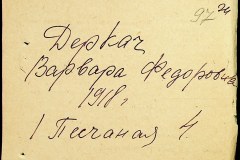 97 24
Деркач
Варвара Федоровна
1918 г
1 Песчаная 4